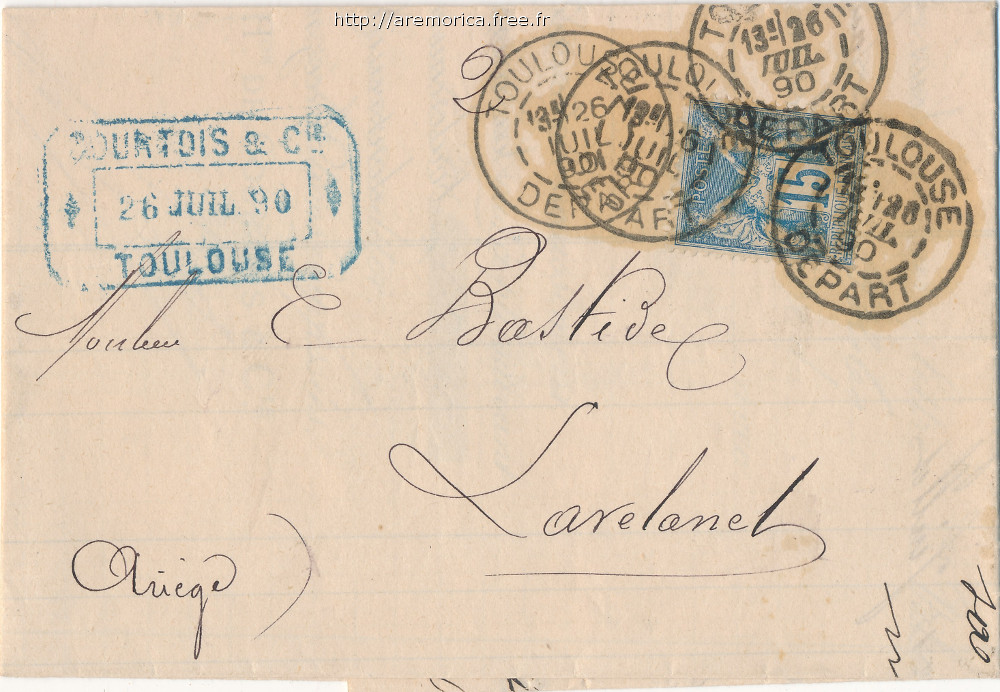 http://aremorica.free.fr
COURTOIS & Cie
26 JUIL 90
TOULOUSE
TOULOUSE
26
JUIL
90
DEPART
TOULOUSE
JUIL
90
DEPART
13E/26
JUIL
90
TOULOUSE
DEPART
POSTE
15
2
Monsieur E Bastide
Lavelanet
(Ariège)